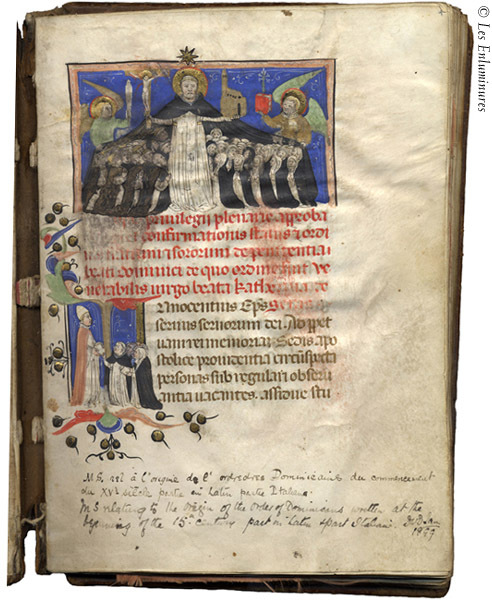 privilegii plenarie approba
et confirmationis status
sororum de penitentia
beati dominici de quo ordine fuit ve
nerabilis virgo beata Kathe de
Innocentius Eps
servus servorum dei. Ad ppet
uam rei memoriam Sedis apo
stolice providentia circũspecta
personas sub regulari observ
antia vacantes. assidue stu
MS à l'origine de l' ordre Dominicains du commencement
du XVe siècle partie en Latin partie Italiano.
MS relating to the origin of the Order of Dominicans written at the
beginning of the 15th century part in Latin & part Italiani.
© Les Enluminures